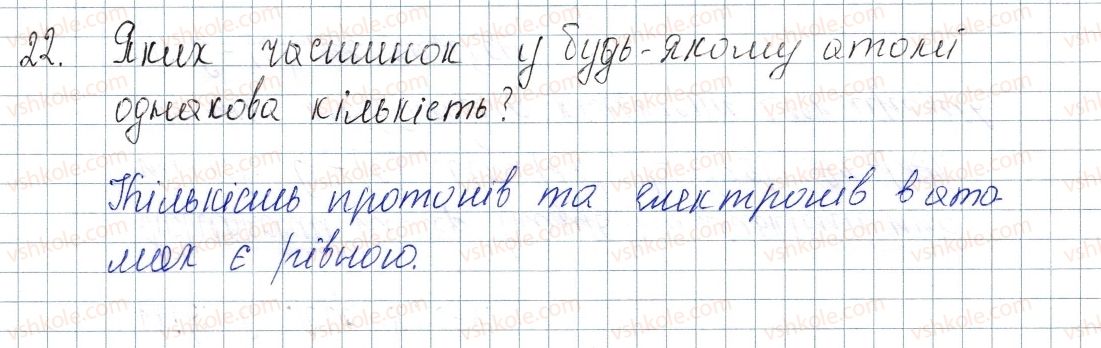 22. Яких частинок у будь-якому атомі
однакова кількість?
Кількість протонів та електронів в ато
мах є рівною.